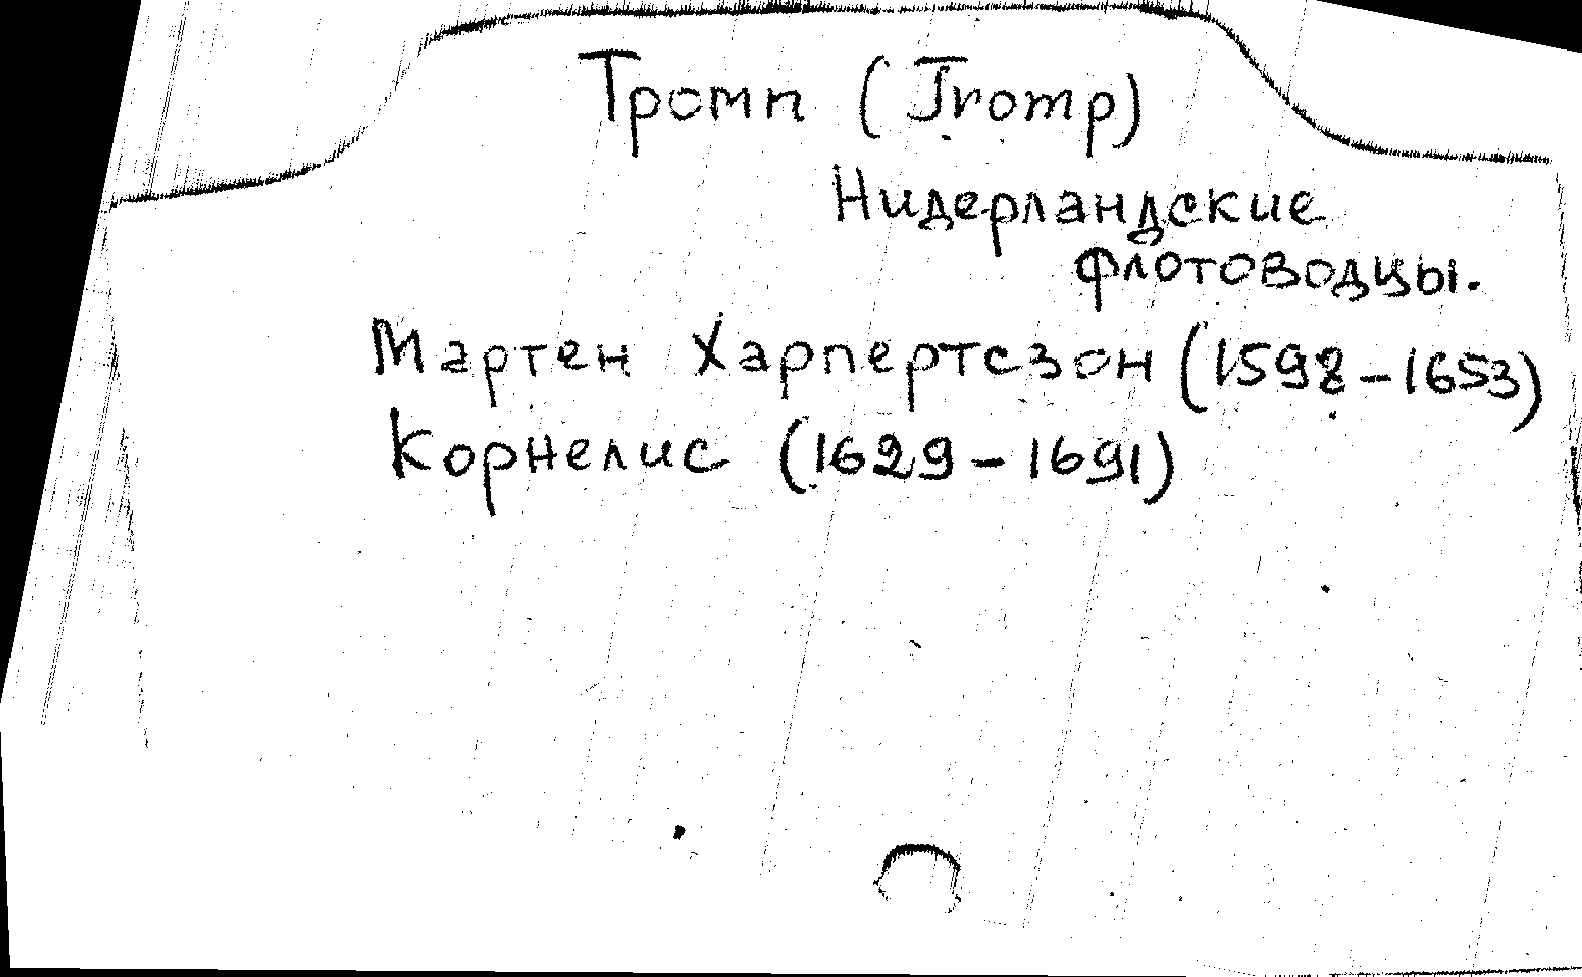 Тромп (Tromp)
Нидерландские
флотоводцы.
Мартен Харпертсзон (1598-1653)
Корнелис (1629-1691)